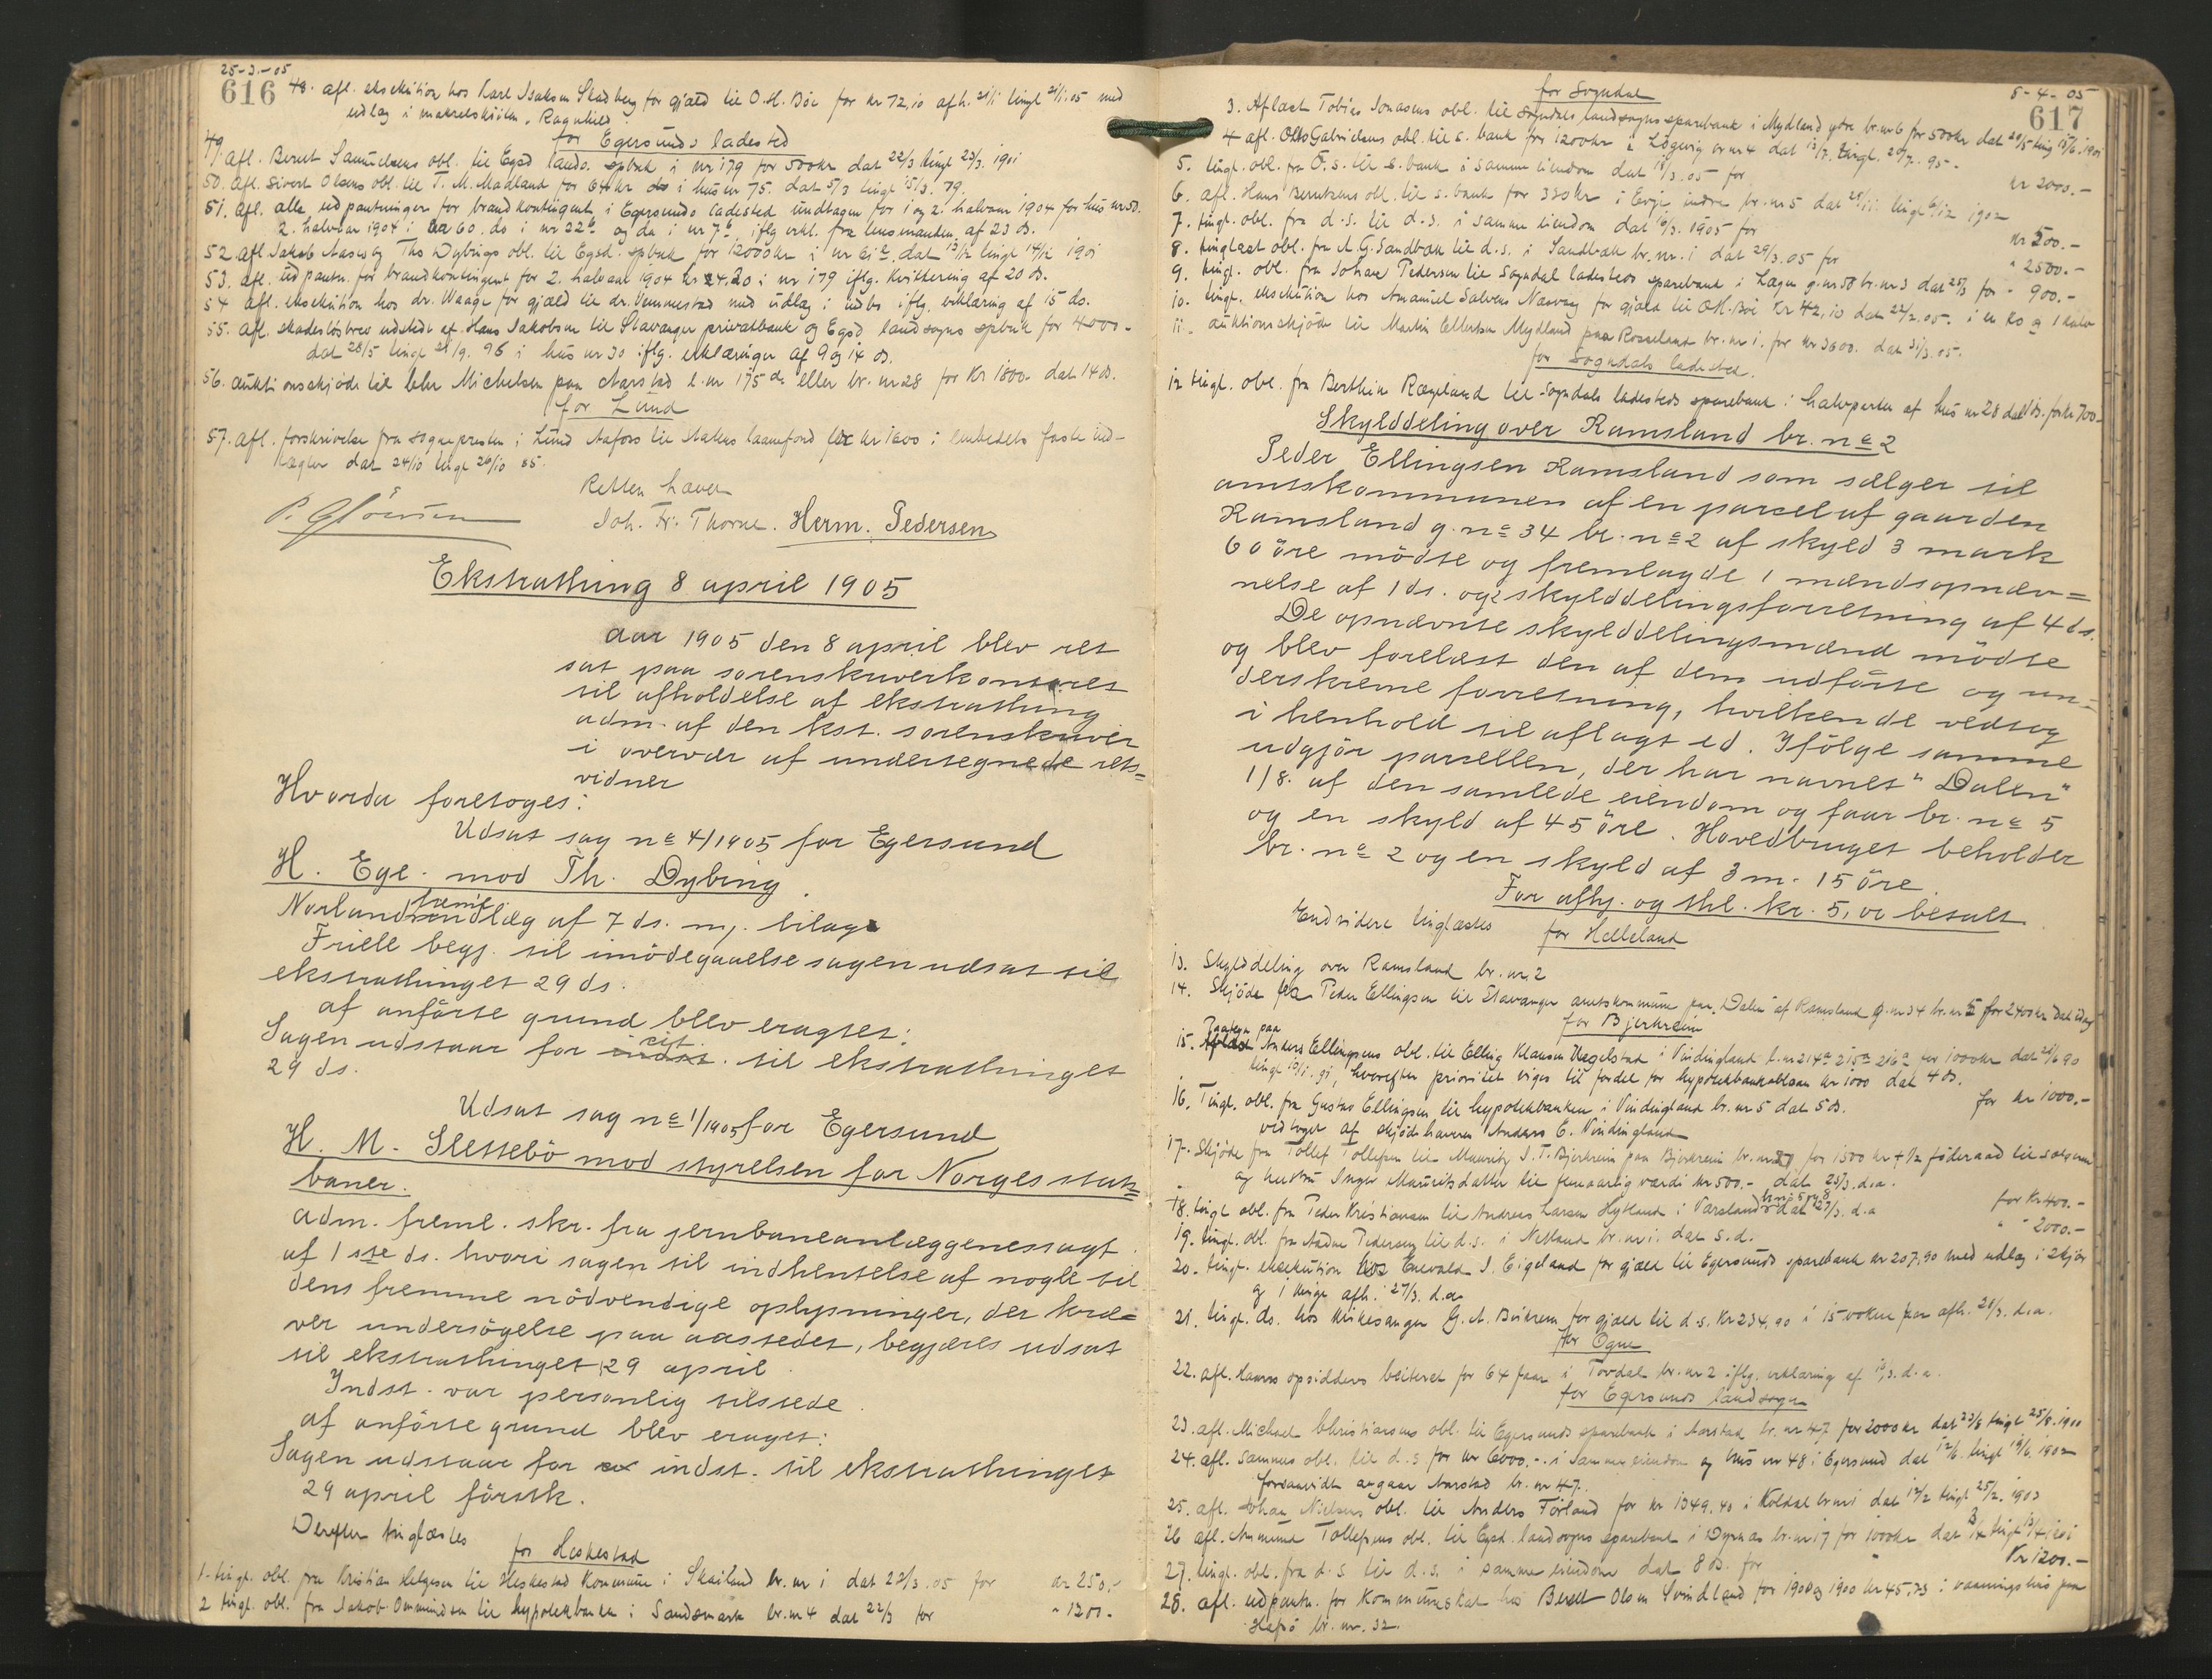 25-3.-05
616
48. afl. eksekution hos Karl Isaksen Skadberg for gjæld til O. H. Böe for kr 72,10 afh. 21/1 tingl 21/1.05 med
udlæg i makrelskøiten "Ragnhild"
for Egersunds ladested
49. afl. Bernt Samuelsens obl. til Egsd lands. spbnk i nr 179 for 500kr dat 22/3 tingl 23/3. 1901
50. afl. Sivert Olsens obl. til T. M. Madland for 64 kr i hus nr 75. dat 5/3 tingl 15/3. 79.
51. afl. alle udpantninger for brandkontingent i Egersunds ladested undtagen for 1 og 2. halvaar 1904 for hus nr 50.
2. halvaar 1904 i 60. do i nr 22 b og do i nr 7 b, iflg erkl. fra lensmanden af 23 ds.
52. afl Jakob Aase og Ths Dybings obl. til Egsd. spbnk for 12000kr i nr 61 a. dat 13/12 tingl 14/12 1901
53. afl. udpantn. for brandkontingent for 2. halvaar 1904 kr 24.20 i nr 179 iflg. kvittering af 20 ds.
54 afl. eksekution hos dr. Waage for gjæld til dr. Vennestad med udlæg i indbo iflg. erklæring af 15 ds.
55. afl. skadesløsbrev udstedt af Hans Jakobsen til Stavanger privatbank og Egsd landsogns spbnk for 4000.-
dat 28/5 tingl 21/9. 96 i hus nr 30 iflg. erklæringer af 9 og 14 ds.
56. auktionsskjöde til Chr Michelsen paa Aarstad l. nr 175 d. eller br. nr 28 for kr 1800.- dat 14 ds.
for Lund
57. afl. forskrivelse fra sognepresten i Lund Aafoss til Aakers laanefond for kr 1600 i embedets faste ind-
tægter dat 24/10 tingl 26/10 85.
Retten hævet
Joh. Fr. Thorne. Herm. Pedersen
Ekstrathing 8 april 1905
Aar 1905 den 8 april blev ret
sat paa sorenskriverkontoret
til afholdelse af ekstrathing
adm. af den kst. sorenskriver
i overvær af undertegnede rets=
vidner
Hvorda foretoges:
Udsat sag no 4/1905 for Egersund
H. Ege. mod Th. Dybing.
Norland freml. indlæg af 7 ds. m. bilag
Friele begj. til imödegaaelse sagen udsat til
ekstrathinget 29 ds.
af anförte grund blev eragtet:
Sagen udstaar for indst. cit. til ekstrathinget
29 ds.
Udsat sag no 1/1905 for Egersund
H. M. Slettebö mod styrelsen for Norges stats=
baner.
adm. freml. skr. fra jernbaneanlæggenes sagf.
af 1ste ds. hvori sagen til indhentelse af nogle til
dens fremme nödvendige oplysninger, der kræ=
ver undersögelse paa aastedet, begjæres udsat
til ekstrathinget 29 april.
Indst. var personlig tilstede.
af anförte grund blev eraget:
Sagen udstaar for indst. til ekstrathinget
29 april förstk.
Derefter tinglæstes
for Heskestad
1. tingl. obl. fra Kristian Helgesen til Heskestad Kommune i Skailand br. nr 1 dat 22/3.05 for kr 250.-
2 tingl. obl. fra Jakob Ommundsen til hypotekbanken i Sandsmark br. nr 4 dat 22/3 for " 1300.-
8-4-05
617
for Sogndal
3. Aflæst Tobias Jonasens obl. til Sogndals landsogns sparebank i Mydland ytre br. nr 6 for 500kr dat 20/5 ting 15/6.1901
4 afl. Olle Gabrielsens obl. til s. bank for 1200kr i Løgevig br nr 4 dat 13/7. tingl. 20/7. 95.-
5. tingl. obl. fra O. S. til s. bank i samme eiendom dat 18/3.05 for kr 2000.-
6. afl. Hans Berntsens obl. til s. bank for 330kr i Evje indre br. nr 5 dat 28/11. tingl 6/12 1902
7. tingl. obl. fra d. s. til d. s. i samme eiendom dat 16/3. 1905 for kr 500.-
8. tinglæst obl. fra A. G. Sandbæk til d. s. i Sandbæk br. nr. 1 dat 29/3.05 for " 2500.-
9. tingl. obl. fra Johan Pedersen til Sogndal ladesteds sparebank i Lægn g. nr 50 br. nr 3 dat 25/3 for " 900.-
10. tingl. eksekution hos Amaniel Salvesen Næsvåg for gjæld til O. H. Böe kr 42,10 dat 22/2.05. i en ko og 1 kalv
11. auktionsskjøde til Martin Ellertsen Mydland paa Rosseland br. nr 1. for kr 3600. dat 31/3.05.
for Sogndals ladested.
12 tingl. obl. fra Berthin Rægeland til Sogndals ladesteds sparebank i halvparten af hus nr 28 dat ds. for kr 700.-
Skylddeling over Ramsland br. no 2
Peder Ellingsen Ramsland som sælger til
amtskommunen af en parcel af gaarden
Ramsland g. no 34 br. no 2 af skyld 3 mark
60 öre mödte og fremlagde 1 mændsopnæv=
nelse af 1 ds. og 2 skylddelingsforretning af 4 ds.
De opnævnte skylddelingsmænd mödte
og blev forelæst den af dem udförte og un=
derskrevne forretning, hvilken de vedtog
i henhold til aflagt ed. Ifölge samme
udgjör parcellen, der har navnet "Dalen"
1/8. af den samlede eiendom og faar br. no 5
og en skyld af 45 öre. Hovedbruget beholder
br. no 2 og en skyld af 3 m. 15 öre.
For afhj. og thl. kr. 5,00 betalt
Endvidere tinglæstes
for Helleland
13. Skylddeling over Ramsland br. nr. 2
14. Skjöde fra Peder Ellingsen til Stavanger amtskommune paa "Dalen" af Ramsland g. nr 34 br. nr 5 for 2400kr dat idag
for Bjerkreim
15. Paategn paa Anders Ellingsens obl. til Elling Klausen Hegelstad i Vindingland l. nr 214 a 215 a 216 a for 1000kr dat 28/6 90
tingl 10/1. 91, hvorefter prioritet viges til fordel for hypotekbanklaan kr 1000 dat 4 ds.
16. Tingl. obl. fra Gustav Ellingsen til hypotekbanken i Vindingland br. nr 5 dat 5 ds. for kr 1000.-
vedtaget af skjödehaveren Anders E. Vindingland
17. Skjöde fra Tollef Tollefsen til Mauritz S. T. Bjerkreim paa Bjerkreim br. nr 27 for 1500 kr + 1/2 föderaad til sælgeren
og hustru Inger Mauritsdatter til femaarlig værdi kr 500.- dat 25/3. d.a.
18. tingl obl. fra Peder Kristiansen til Andreas Larsen Hytland i Varsland br. nr 5 og 8 dat 27/3. d.a for kr 400.-
19. tingl. obl. fra Aadne Pedersen til d. s. i Netland br. nr 1. dat s. d. " " 2000.-
20. tingl. eksekution hos Enevald I. Eigeland for gjæld til Egersunds sparebank kr 207,90 med udlæg i 2 kjör
og 1 kvige afh. 27/3. d.a.
21. tingl. ds. hos kirkesanger G. A. Birkrem for gjæld til d. s. kr 234,90 i 15 voksne faar afh. 28/3. d.a.
for Ogne
22. afl. Haaros opsidders beiteret for 64 faar i Tovdal br. nr 2 iflg. erklæring af 18/3. d.a.
for Egersunds landsogn
23. afl. Michael Christiansens obl. til Egersunds sparebank i Aarstad br. nr 47 for 2000kr dat 23/8 tingl 25/8. 1900
24. afl. sammes obl. til d. s for kr 6000.- i samme eiendom og hus nr 48 i Egersund dat 12/6. tingl 19/6. 1902
forsaavidt angaar Aarstad br. nr 47.
25. afl. Johan Nielsens obl. til Anders Förland for kr 1349.40 i Koldal br nr 1 dat 12/2 tingl 25/2. 1903
26 afl. Ammund Tollefsens obl. til Egsd. landsogns sparebank i Dyrnæs br. nr 17 for 1000kr dat tingl 13/4 1901
27. tingl. obl. fra d. s til d. s. i samme eiendom dat 8 ds. for kr 1200.-
28. afl. udpantn. for kommuneskat hos Berett Olsen Svindland for 1900 kr 45,73 i vaaningshus paa
Hafsö br. nr. 32.